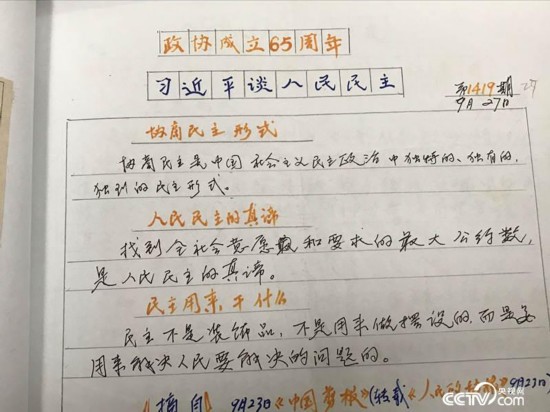 政协成立65周年
习近平谈人民民主
第1419期
9月27日
协商民主形式
协商民主是中国社会主义民主政治中独特的、独有的、
独到的民主形式。
人民民主的真谛
找到全社会意愿和要求的最大公约数,
是人民民主的真谛。
民主用来干什么
民主不是装饰品,不是用来做摆设的,而是要
用来解决人民要解决的问题的。
摘自 9月23日《中国剪报》(转载《人民
9月23日
央视网
CCTV.com